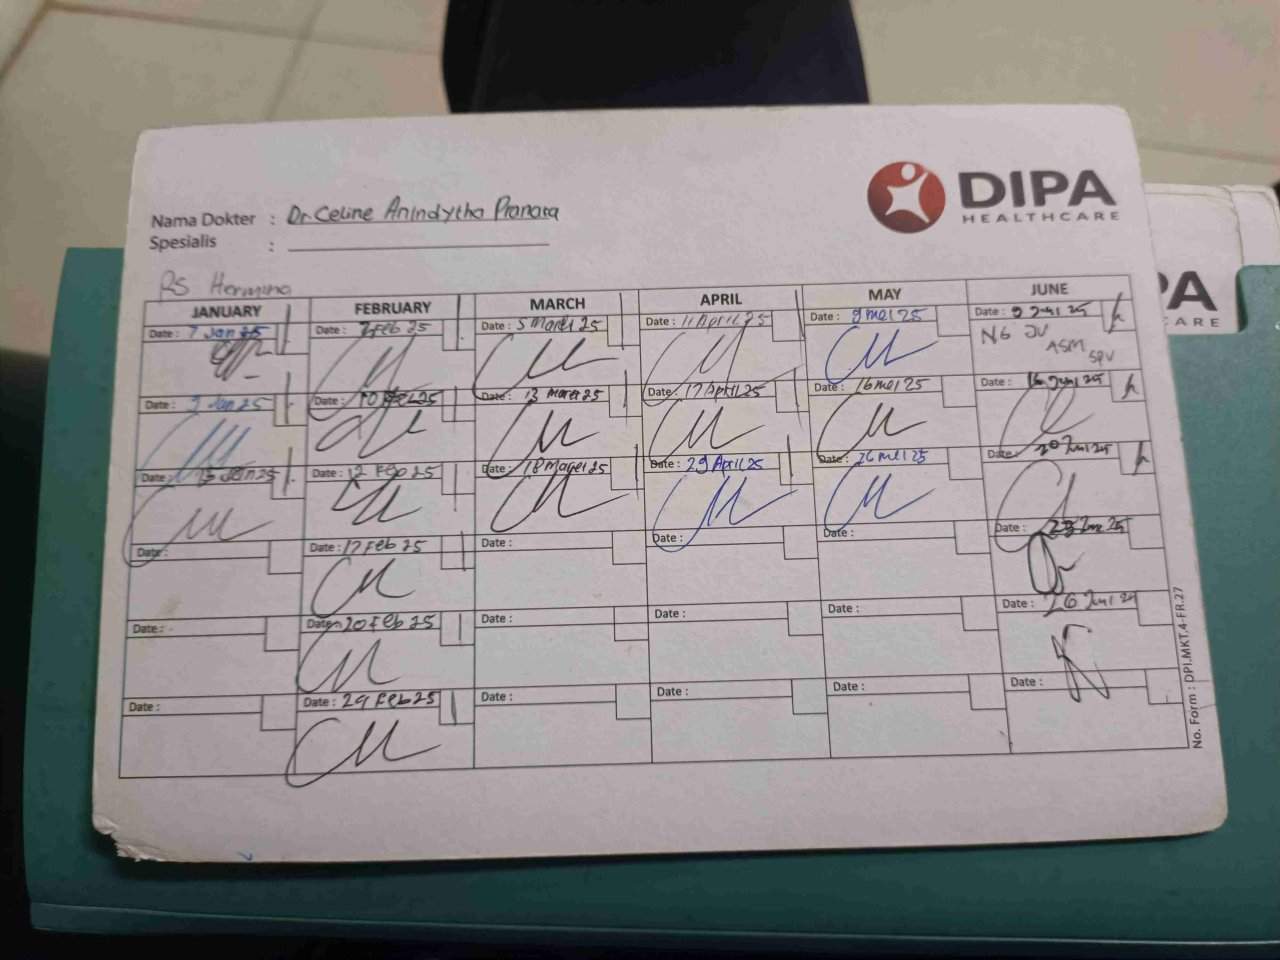 DIPA
HEALTHCARE
Nama Dokter : Dr. Celine Anindytha Pranata
Spesialis :
RS Hermina
JANUARY FEBRUARY MARCH APRIL MAY JUNE
Date : 7 Jan 25 Date : 7 Feb 25 Date : 5 Maret 25 Date : 11 April 25 Date : 9 mei 25 Date : 9 Juni 25
NG JV
ASM
SPV
Date : 9 Jan 25 Date : 10 Feb 25 Date : 13 Maret 25 Date : 17 April 25 Date : 16 mei 25 Date : 16 Juni 25
Date : 15 Jan 25 Date : 12 Feb 25 Date : 18 Maret 25 Date : 29 April 25 Date : 26 mei 25 Date : 20 Juni 25
Date : Date : 17 Feb 25 Date : Date : Date : Date : 25
Date : Date : 20 Feb 25 Date : Date : Date : Date : 26 Juni
Date : Date : 29 Feb 25 Date : Date : Date : Date :
No. Form : DPI.MKT.4-FR.27
PA
CARE